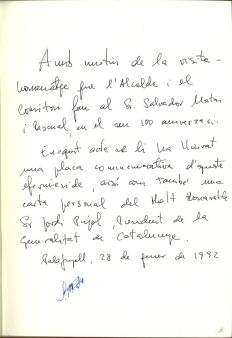 Amb motiu de la visita -
homenatge que l'Alcalde i el
consistori fan al Sr. Salvador Matas
i Pascual, en el seu 100 aniversari.
En aquest acte se li ha lliurat
una placa commemorativa d'aquesta
efemèride, així com també una
carta personal del Molt Honorable
Sr Jordi Pujol, President de la
Generalitat de Catalunya.
Palafrugell, 28 de gener de 1992